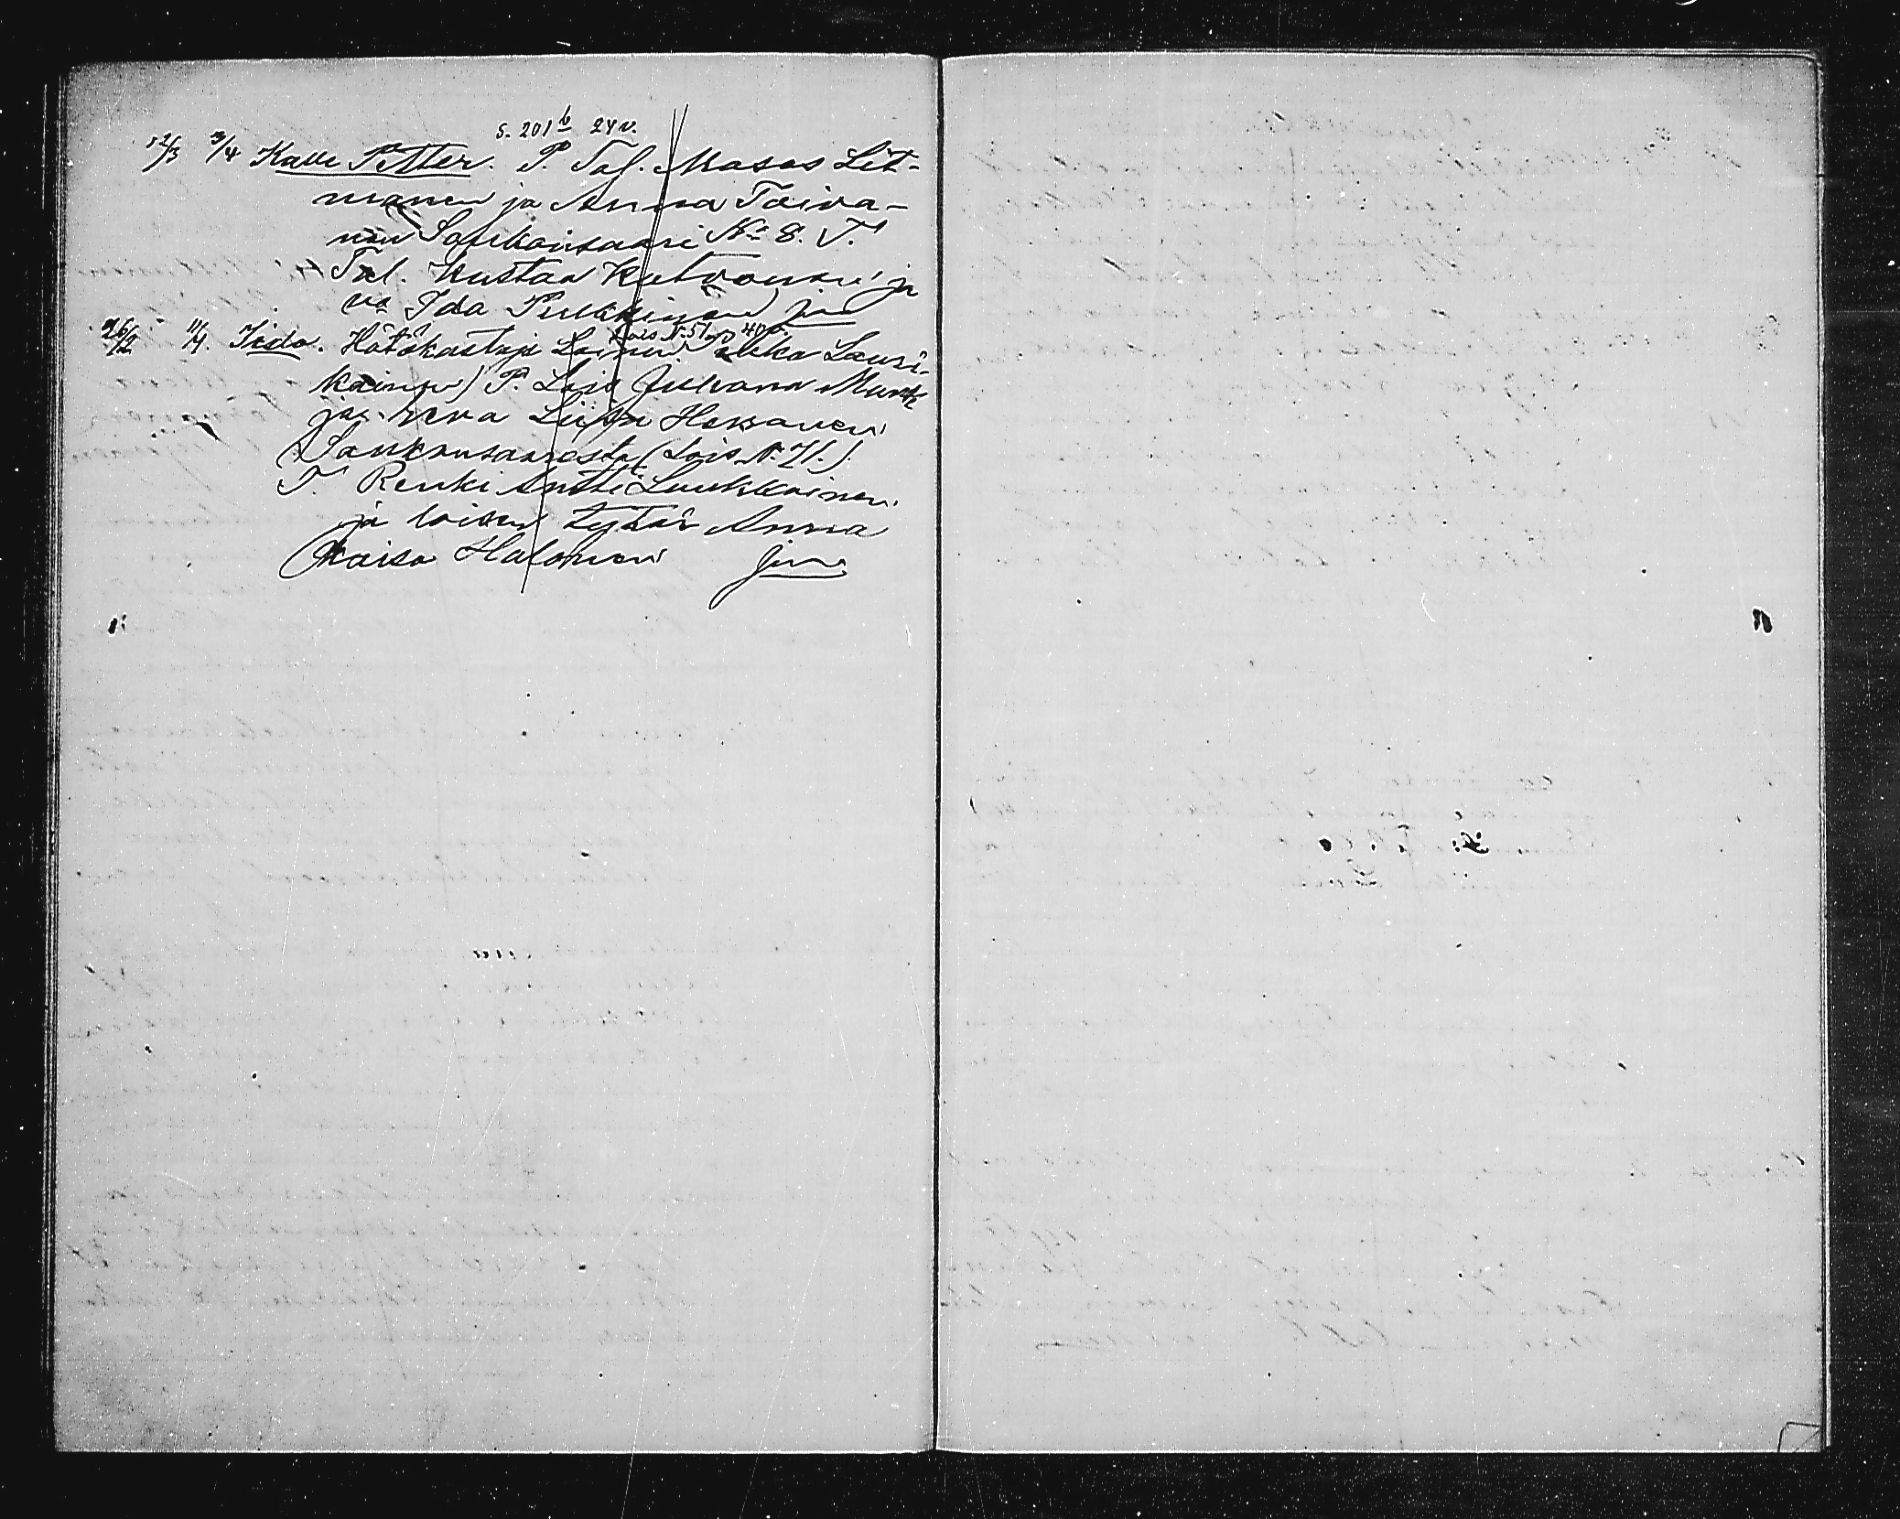 s. 201 b 24 v.
3/4 Kalle Petter. P. Tal. Masas Lit-
manen ja Anna Toiva-
nen Saukonsaari No 8. T.
Tal. Kustaa Kutvonen ja
va Ida Pulkkinen
Lois N. 51 40
26/12 11/4. Iida. Hätäkastaja Loinen Aka Lauri-
kainen) P. Lois Juhana Munk
ja v. Liisa Hassanen
Saukonsaaresta (Lois N. 71.)
T. Renki Antti Luukkainen
ja loisen tytär Anna
Kaisa Halonen